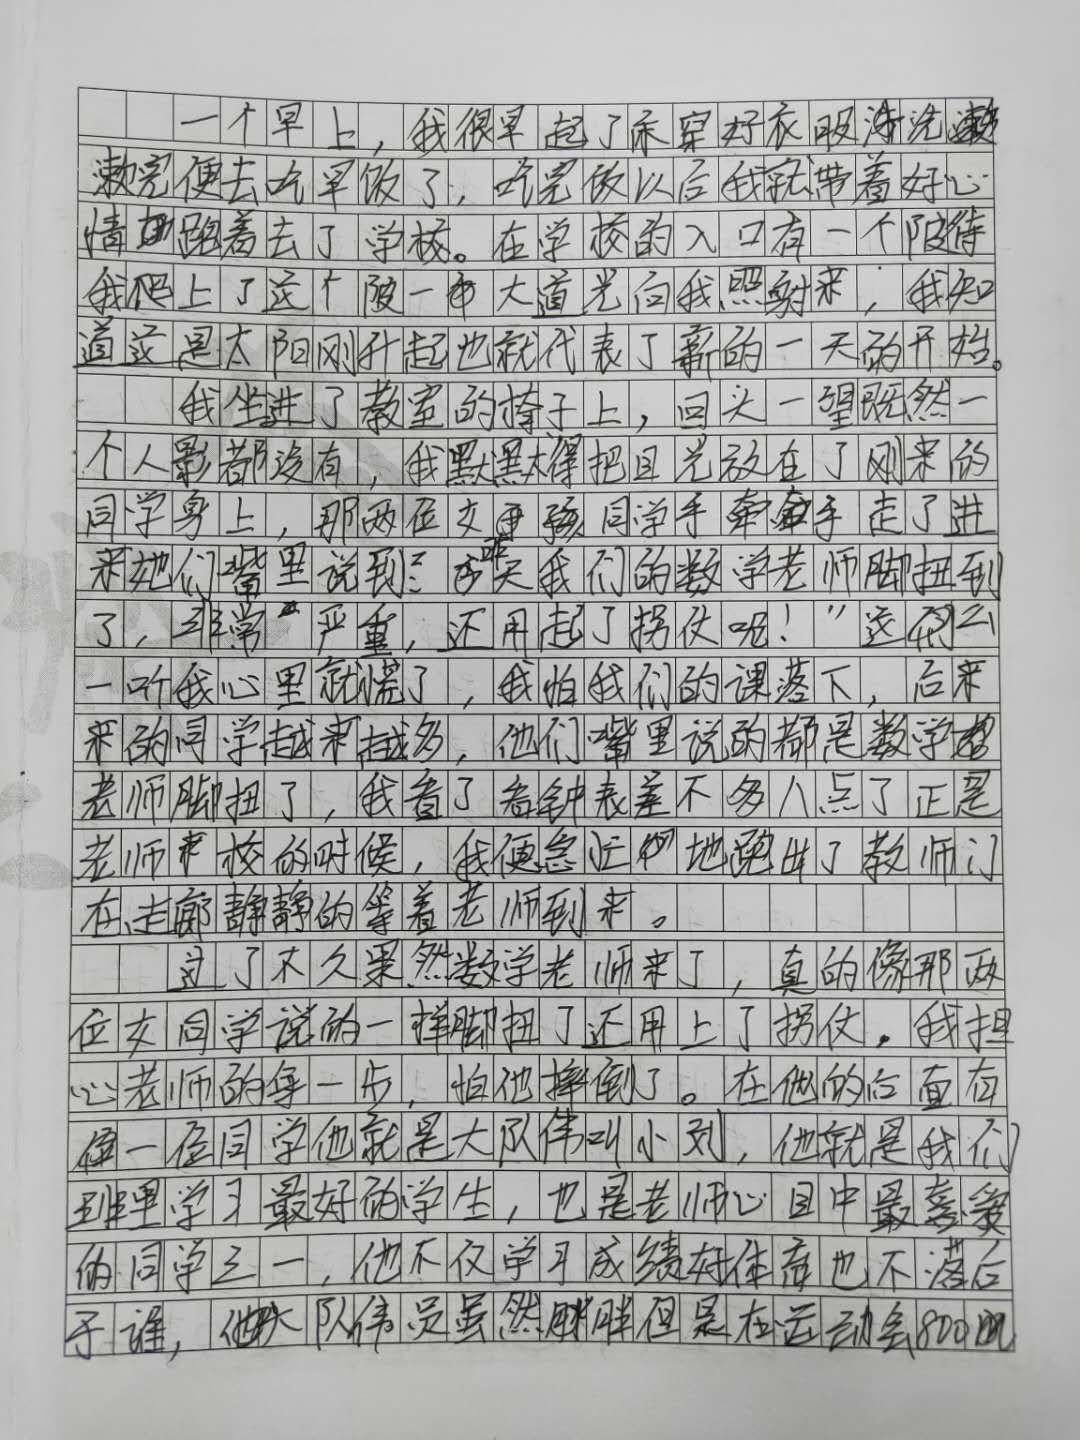 一个早上，我很早起了床穿好衣服洗漱
漱完便去吃早饭了，吃完饭以后我就带着好心
情跑着去了学校。在学校的入口有一个陂待
我爬上了这个陂一大道光向我照射来，我知
道这是太阳刚升起也就代表了新的一天的开始。
我坐进了教室的椅子上，回头一望既然一
个人影都没有，我默默得把目光放在了刚来的
同学身上，那两位女同学手牵手走了进
来她们嘴里说到：天我们的数学老师脚扭到
了，非常严重，还用起了拐仗呢！”这么
一听我心里就慌了，我怕我们的课落下，后来
来的同学越来越多，他们嘴里说的都是数学
老师脚扭了，我看了看钟表差不多八点了正是
老师来校的时候，我便急忙地跑出了教师门
在走廊静静的等着老师到来。
过了不久果然数学老师来了，真的像那两
位女同学说的一样脚扭了还用上了拐仗。我担
心老师的每一步，怕他摔倒了。在他的后面有
一位同学他就是大队伟叫小刘，他就是我们
班里学习最好的学生，也是老师心目中最喜爱
的同学之一，他不仅学习成绩好体育也不落后
于谁，他大队伟员虽然胖胖但是在运动会800m